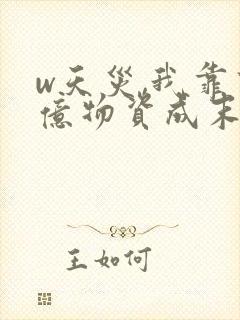 w天災,我靠
億物資成末
王如何